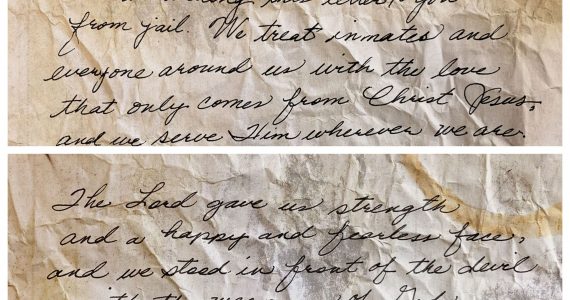 this letter to you
from jail. We treat inmates and
everyone around us with the love
that only comes from Christ Jesus,
and we serve Him wherever we are.
The Lord gave us strength
and a happy and fearless face,
and we stood in front of the devil